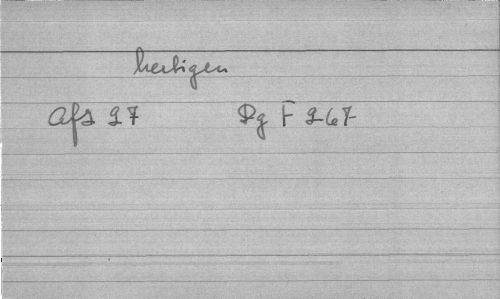 hertigen
Afs 27
Dg F 267